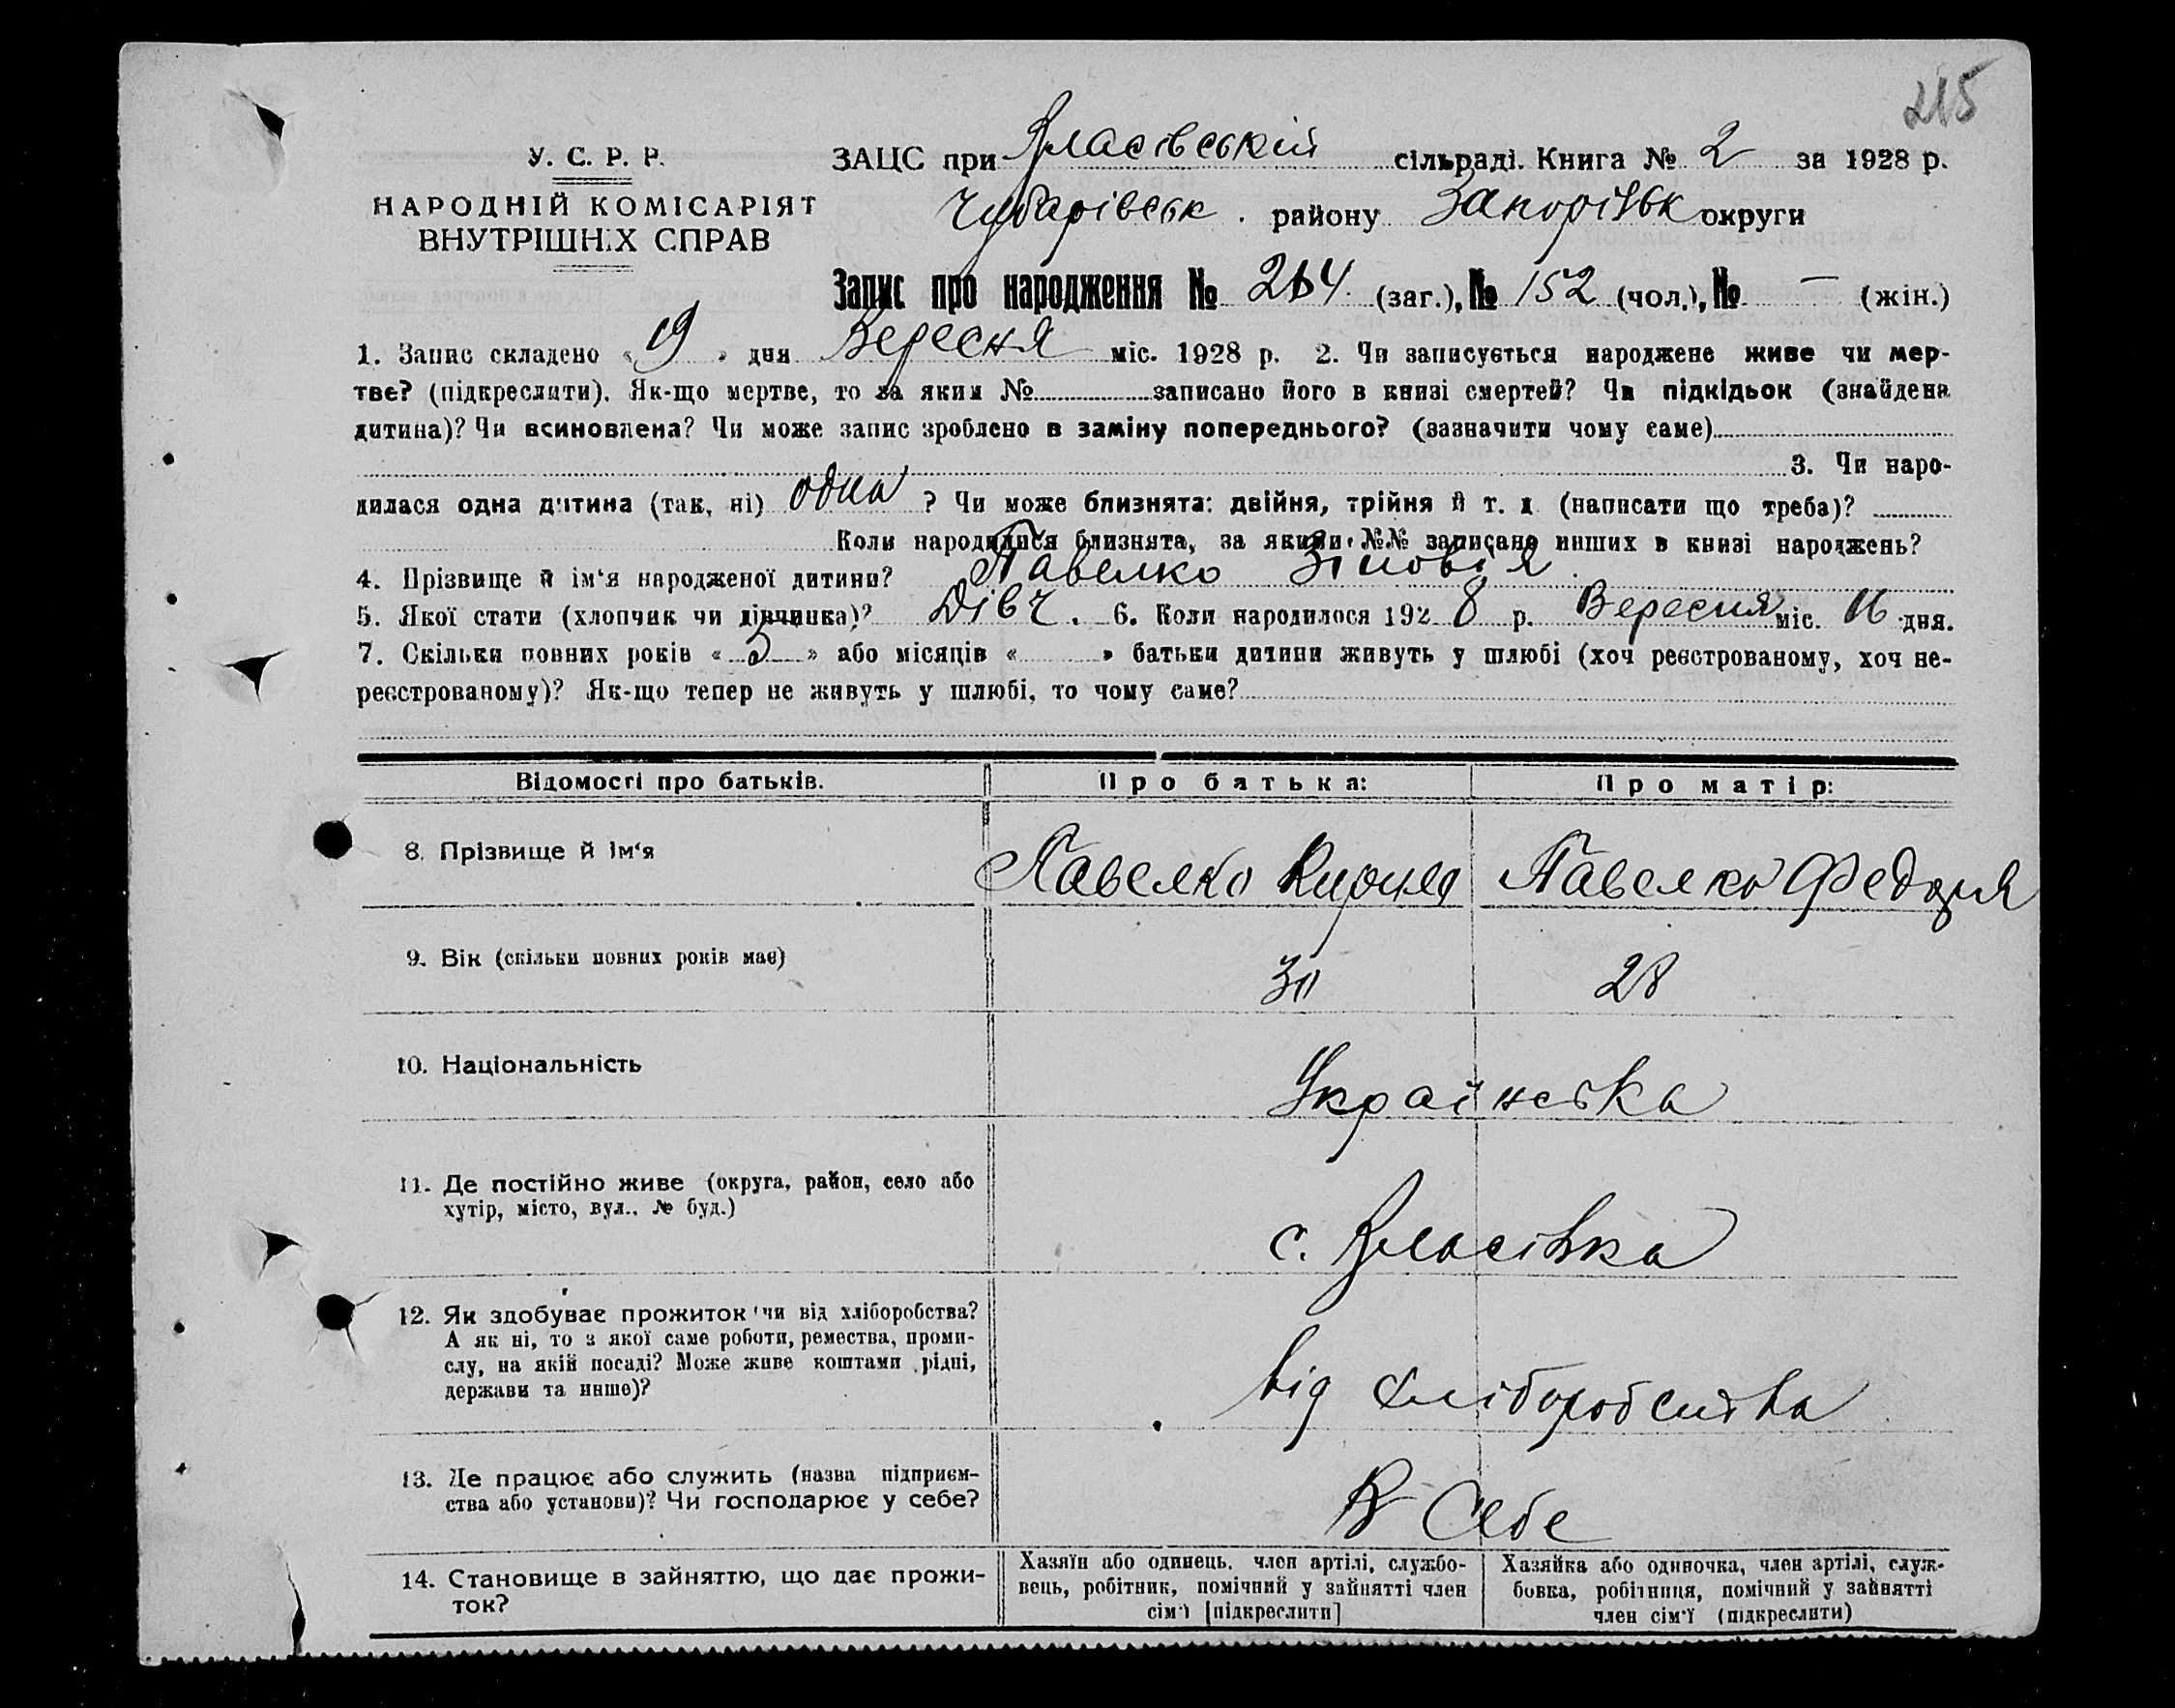 215
У. С. Р. Р.
НАРОДНІЙ КОМІСАРІЯТ
ВНУТРІШНІХ СПРАВ
ЗАЦС при Власівській сільраді. Книга № 2 за 1928 р.
Чубарівськ. району Запорізьк округи
Запис про народження № 264 (заг.), № 152 (чол.), № — (жін.)
1. Запис складено « 19 » дня Вересня міс. 1928 р. 2. Чи записується народжене живе чи мер-
тве? (підкреслити). Як-що мертве, то за яким № записано його в книзі смертей? Чи підкідьок (знайдена
дитина)? Чи всиновлена? Чи може запис зроблено в заміну попереднього? (зазначити чому саме)
3. Чи наро-
дилася одна дитина (так, ні) одна ? Чи може близнята: двійня, трійня й т. д (написати що треба)?
Коли народилися близнята, за якими №№ записано инших в книзі народжень?
4. Прізвище й ім‘я народженої дитини? Павелко Зіновія
5. Якої стати (хлопчик чи дівчинка)? Дівч. 6. Коли народилося 1928 р. Вересня міс. 16 дня.
7. Скільки повних років « 5 » або місяців « » батьки дитини живуть у шлюбі (хоч реєстрованому, хоч не-
реєстрованому)? Як-що тепер не живуть у шлюбі, то чому саме?
Відомості про батьків. Про батька: Про матір:
8. Прізвище й ім‘я Павелко Павелко Федора
9. Вік (скільки повних років має) 30 28
10. Національність Українська
11. Де постійно живе (округа, район, село або
хутір, місто, вул., № буд.) с. Власівка
12. Як здобуває прожиток чи від хліборобства?
А як ні, то з якої саме роботи, ремества, проми-
слу, на якій посаді? Може живе коштами рідні,
держави та инше)? від хліборобства
13. Де працює або служить (назва підприєм-
ства або установи)? Чи господарює у себе? В себе
14. Становище в зайняттю, що дає прожи-
ток?
Хазяїн або одинець, член артілі, службо-
вець, робітник, помічний у зайнятті член
сім'ї [підкреслити]
Хазяйка або одиночка, член артілі, служ-
бовка, робітниця, помічний у зайнятті
член сім'ї (підкреслити)